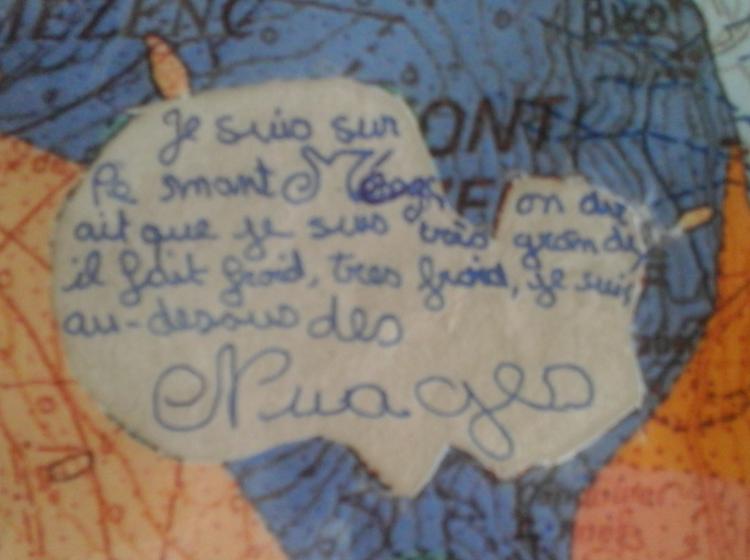 MEZENC
BISO
ONT
Je suis sur
le mont
on dir
ait que je suis très grande
il fait froid, tres froid, je suis
au-dessus des
Nuages